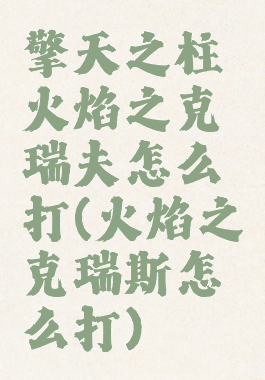 擎天之柱
火焰之克
瑞夫怎么
打(火焰之
克瑞斯怎
么打)